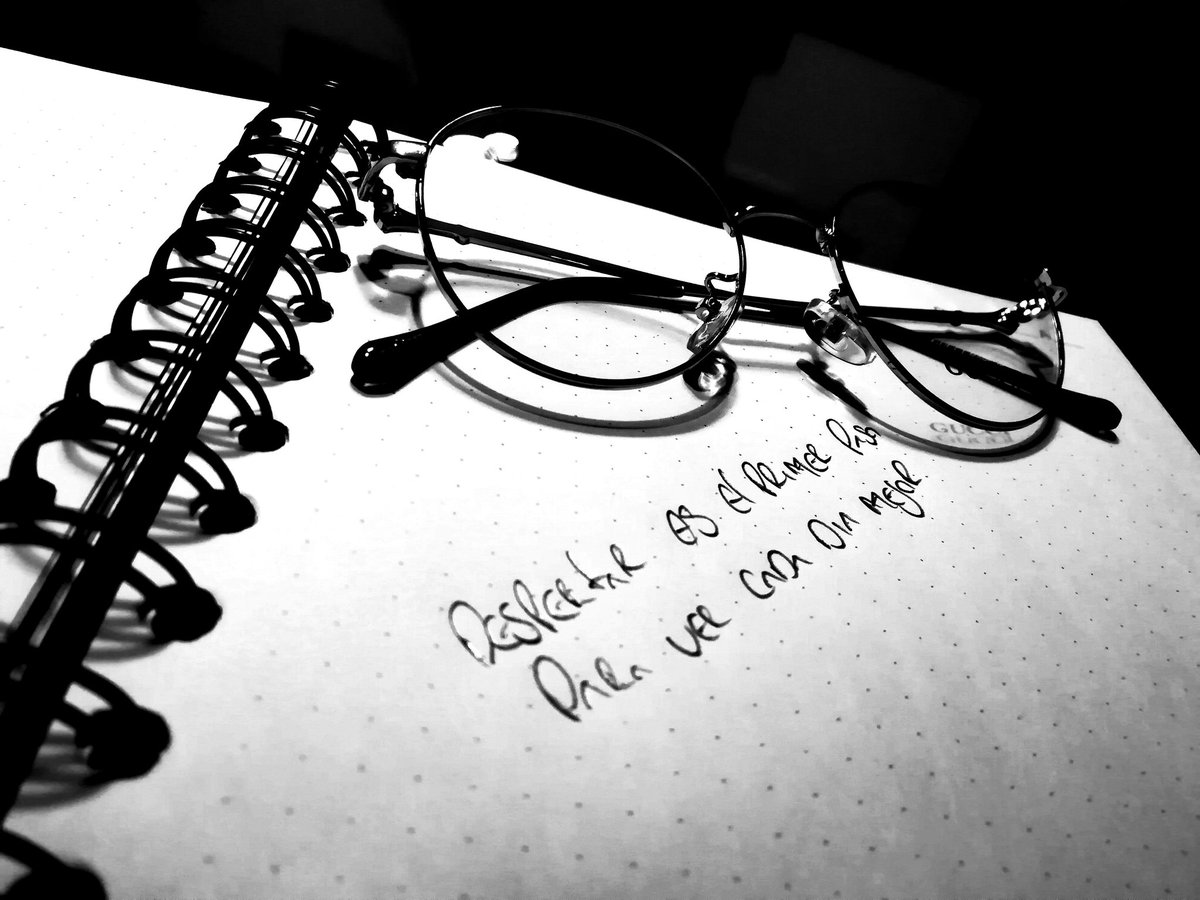 GUCCI
DESPERTAR ES El PRIMER PASO
PARA VER CADA DIA MEJOR